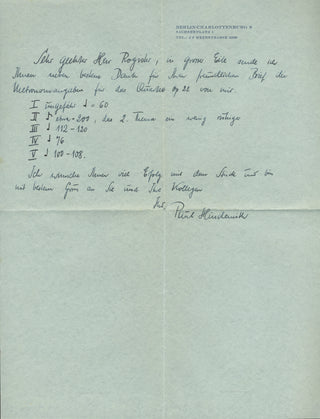 BERLIN-CHARLOTTENBURG 9
SACHSENPLATZ 1
Sehr geehrter Herr Rogister, in grosser Eile sende ich
Ihnen meinen besten Dank für Ihren freundlichen Brief die
Metronomangaben für das Quartett Op 22 von mir.
I ungefähr ♩ = 60
II ♩ etwa 200, das 2. Thema ein wenig ruhiger
III ♩ 112-120
IV ♩ 76
V ♩ 100-108.
Ich wünsche Ihnen viel Erfolg mit dem Stück und bin
mit bestem Gruss an Sie und Ihre Kollegen
Ihr Paul Hindemith